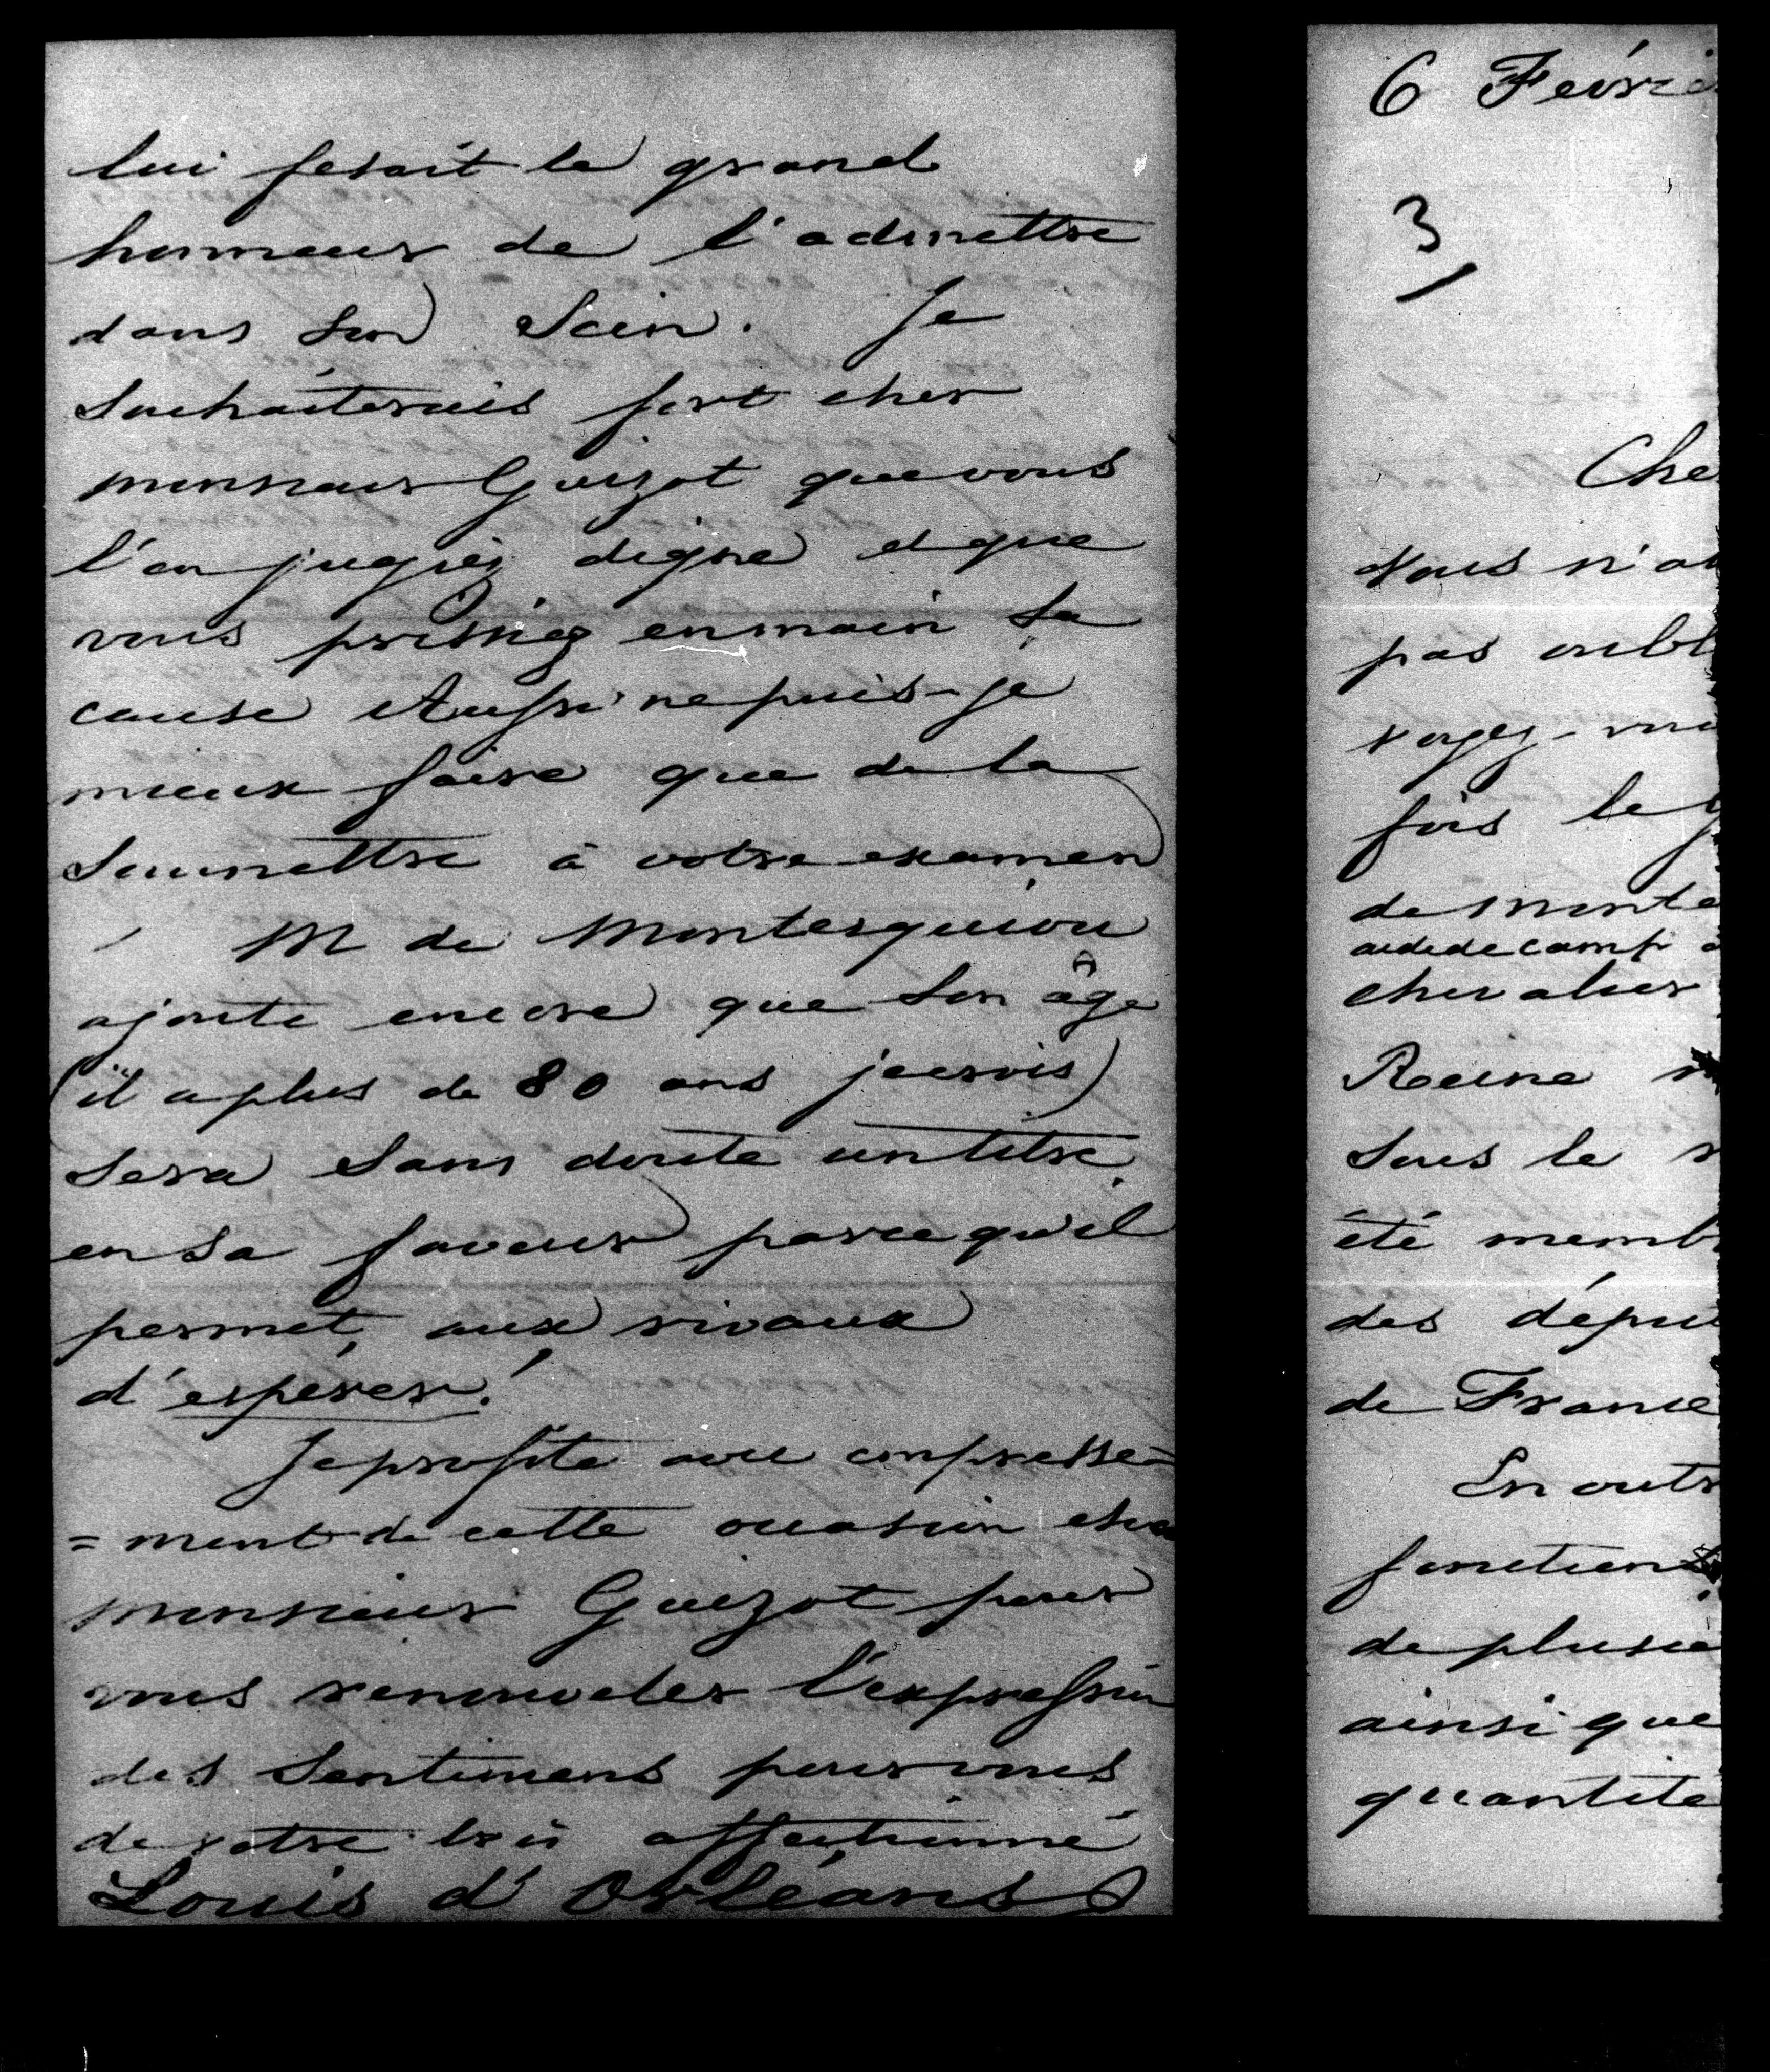 lui fesait le grand
honneur de l'admettre
dans son Sein. Je
Souhaiterais fort cher
monsieur Guizot que vous
l'en jugiez digne et que
vous prissiez en main Sa
cause Aussi ne puis-je
mieux faire que de la
Soumettre à votre examen
M de Montesquiou
ajoute encore que Son âge
(il a plus de 80 ans je crois)
Sera Sans doute un titre
en Sa faveur parce qu'il
permet aux rivaux
d'espérer!
Je profite avec empresse=
=ment de cette occasion cher
monsieur Guizot pour
vous renouveler l'expression
des Sentimens pour vous
de votre très affectionné
Louis d'Orléans
6 Févrie
3
Che
Vous n'a
pas oubl
voyez-vou
fois le g
de Monte
aide de camp
chevalier
Reine
Sous le
été memb
des dépu
de France
En outr
fonctions
de plusie
ainsi que
quantité